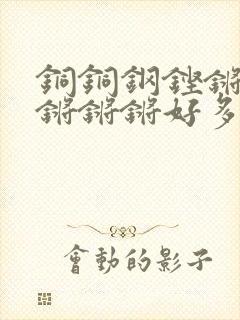 銅銅鋼鏗鏘
鏘鏘鏘好多
會動的影子